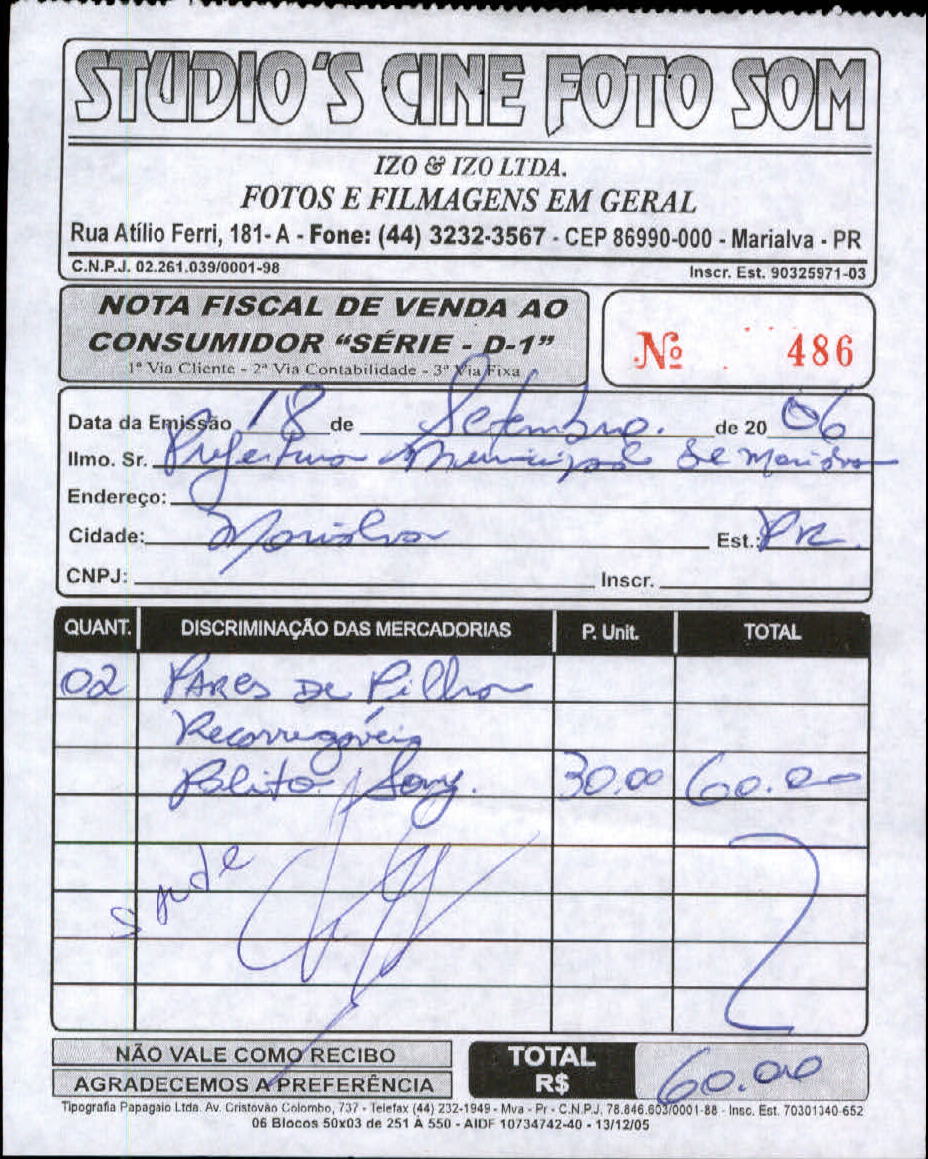 STUDIO'S CINE FOTO SOM
IZO & IZO LTDA.
FOTOS E FILMAGENS EM GERAL
Rua Atílio Ferri, 181- A - Fone: (44) 3232-3567 - CEP 86990-000 - Marialva - PR
C.N.P.J. 02.261.039/0001-98 Inscr. Est. 90325971-03
NOTA FISCAL DE VENDA AO
CONSUMIDOR “SÉRIE - D-1”
1ª Via Cliente - 2ª Via Contabilidade - 3ª Via Fixa
Nº 486
Data da Emissão 18 de Setembro. de 20 06
Ilmo. Sr. Prefeitura Municipal de Marialva
Endereço:
Cidade: Marialva Est.: PR.
CNPJ: Inscr.
QUANT. DISCRIMINAÇÃO DAS MERCADORIAS P. Unit. TOTAL
02 PARES DE Pilha
Recarregáveis
Palito Sony. 30.00 60.00
NÃO VALE COMO RECIBO
AGRADECEMOS A PREFERÊNCIA
TOTAL
R$ 60.00
Tipografia Papagaio Ltda. Av. Cristovão Colombo, 737 - Telefax (44) 232-1949 - Mva - Pr - C.N.P.J. 78.846.603/0001-88 - Insc. Est. 70301340-652
06 Blocos 50x03 de 251 À 550 - AIDF 10734742-40 - 13/12/05